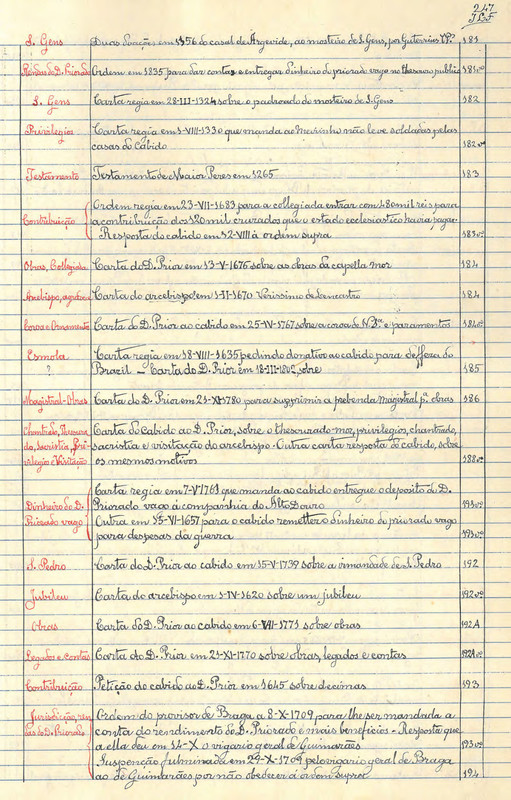 247
S. Gens Duas doações, em 1356 do casal de Argevide, ao mosteiro de S. Gens, por Guterrius 181
Rendas do D. Priorado Ordem em 1835 para dar contas e entregar dinheiro do priorado vago no thesouro publico 181vº
S. Gens Carta regia em 28-III-1324 sobre o padroado do mosteiro de S. Gens 182
Privilegios Carta regia em 1-VIII-1330 que manda ao Meirinho não leve soldadas pelas
casas do Cabido 182vº
Testamento Testamento de Maior Peres em 1265 183
Contribuição Ordem regia em 23-VII-1683 para a collegiada entrar com 480 mil réis para
a contribuição dos 120 mil cruzados que o estado ecclesiastico havia pagar
Resposta do cabido em 12-VIII á ordem supra 183vº
Obras, Collegiada Carta do D. Prior em 13-V-1676 sobre as obras da capella mor 184
Carta do arcebispo em 1-II-1670 Verissimo de Lencastro 184
Coroa e Ornamento Carta do D. Prior ao cabido em 25-IV-1767 sobre a coroa de N. Srª. e paramentos 184vº
Esmola Carta regia em 18-VIII-1635 pedindo donativo ao cabido para deffeza do
? Brazil – Carta do D. Prior em 18-III-1802, sobre 185
Magistral-Obras Carta do D. Prior em 21-XI-1780 para supprimir a prebenda magistral pª. obras 186
Chantrado, Thesoura- Carta do Cabido ao D. Prior, sobre o thesourado-mor, privilegios, chantrado,
do, Sacristia, Pri- sacristia e visitação do arcebispo. Outra carta resposta do cabido, sobre
vilegio e Visitação os mesmos motivos 188vº
Dinheiro do D. Carta regia em 7-V-1761 que manda ao cabido entregue o deposito do D.
Priorado vago Priorado vago á companhia do Alto Douro 190vº
Outra em 15-VI-1657 para o cabido remetter o dinheiro do priorado vago
para despesas da guerra 190vº
S. Pedro Carta do D. Prior ao cabido em 15-V-1739 sobre a irmandade de S. Pedro 192
Jubileu Carta do arcebispo em 1-IV-1620 sobre um jubileu 192vº
Obras Carta do D. Prior ao cabido em 6-VII-1771 sobre obras 192A
Legados e contas Carta do D. Prior em 21-XI-1770 sobre obras, legados e contas 192Avº
Contribuição Petição do cabido ao D. Prior em 1645 sobre decimas 193
Jurisdicção, ren- Ordem do provisor de Braga a 8-X-1709 para lhe ser mandada a
das do D. Priorado conta do rendimento do D. Priorado e mais beneficios - Resposta que
a ella deu em 14-X o vigario geral de Guimarães 193vº
Suspenção fulminada em 29-X-1709 pelo vigario geral de Braga
ao de Guimarães por não obedecer á ordem supra 194